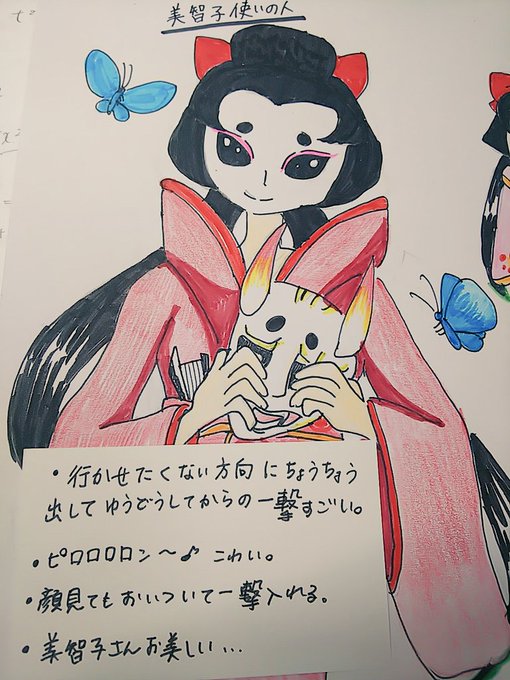 美智子使いの人
・行かせたくない方向にちょうちょう
出してゆうどうしてからの一撃すごい。
・ピロロロロン～♪ こわい。
・顔見てもおいついて一撃入れる。
・美智子さんお美しい…